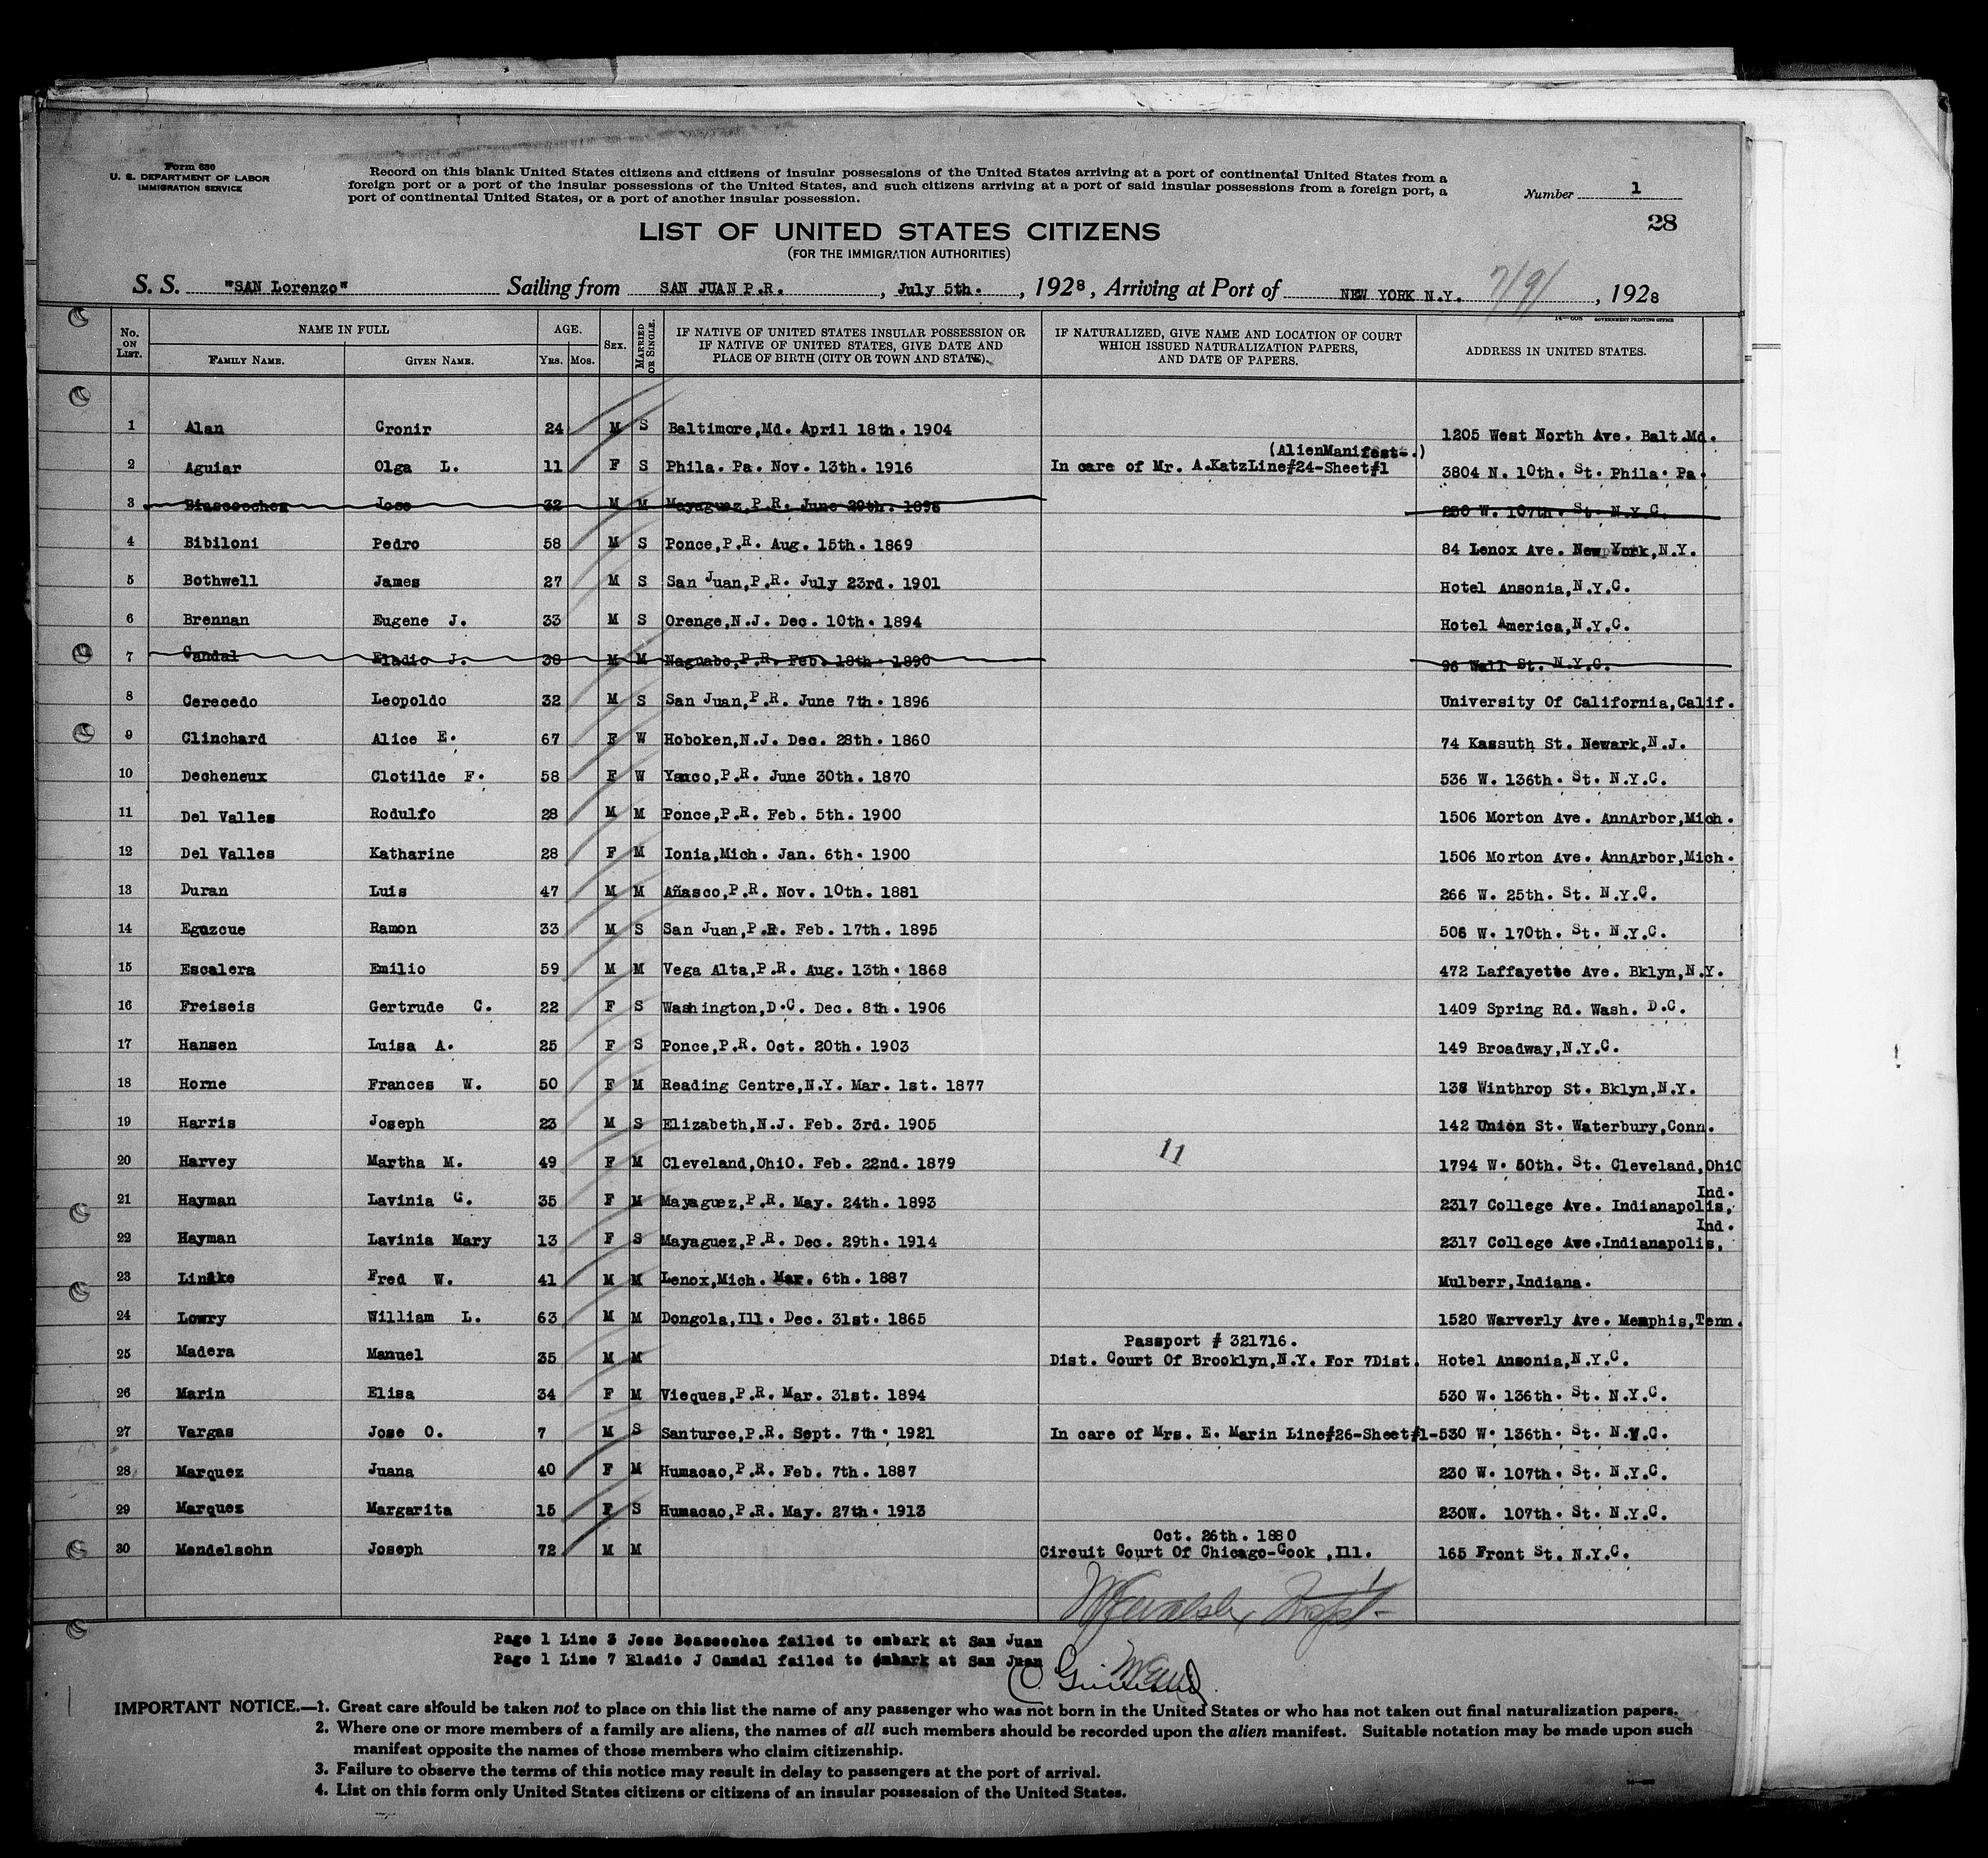 Form 630
U. S. DEPARTMENT OF LABOR
IMMIGRATION SERVICE
Record on this blank United States citizens and citizens of insular possessions of the United States arriving at a port of continental United States from a
foreign port or a port of the insular possessions of the United States, and such citizens arriving at a port of said insular possessions from a foreign port, a
port of continental United States, or a port of another insular possession.
Number 1
28
LIST OF UNITED STATES CITIZENS
(FOR THE IMMIGRATION AUTHORITIES)
S. S. "SAN Lorenzo" Sailing from SAN JUAN P.R. , July 5th. , 1928 , Arriving at Port of NEW YORK N.Y. 7/9/ , 1928
GOVERNMENT PRINTING OFFICE
No. ON LIST. NAME IN FULL FAMILY NAME. GIVEN NAME. AGE. YRS. MOS. SEX. MARRIED OR SINGLE. IF NATIVE OF UNITED STATES INSULAR POSSESSION OR IF NATIVE OF UNITED STATES, GIVE DATE AND PLACE OF BIRTH (CITY OR TOWN AND STATE). IF NATURALIZED, GIVE NAME AND LOCATION OF COURT WHICH ISSUED NATURALIZATION PAPERS, AND DATE OF PAPERS. ADDRESS IN UNITED STATES.
1 Alan Cronir 24 M S Baltimore,Md. April 18th. 1904 1205 West North Ave. Balt.Md.
(AlienManifest.)
2 Aguiar Olga L. 11 F S Phila. Pa. Nov. 13th. 1916 In care of Mr. A.KatzLine#24-Sheet#1 3804 N. 10th. St. Phila. Pa.
3 Jose 32 M M Mayaguez,P.R. June 29th. 230 W. 107th. St. N.Y.C.
4 Bibiloni Pedro 58 M S Ponce,P.R. Aug. 15th. 1869 84 Lenox Ave. New York,N.Y.
5 Bothwell James 27 M S San Juan,P.R. July 23rd. 1901 Hotel Ansonia,N.Y.C.
6 Brennan Eugene J. 33 M S Orenge,N.J. Dec. 10th. 1894 Hotel America,N.Y.C.
7 Candal Eladio J. 38 M M Naguabo,P.R. Feb. 18th. 1890 96 Wall St. N.Y.C.
8 Cerecedo Leopoldo 32 M S San Juan,P.R. June 7th. 1896 University Of California,Calif.
9 Clinchard Alice E. 67 F W Hoboken,N.J. Dec. 28th. 1860 74 Kassuth St. Newark,N.J.
10 Decheneux Clotilde F. 58 F W Yauco,P.R. June 30th. 1870 536 W. 136th. St. N.Y.C.
11 Del Valles Rodulfo 28 M M Ponce,P.R. Feb. 5th. 1900 1506 Morton Ave. AnnArbor,Mich.
12 Del Valles Katharine 28 F M Ionia,Mich. Jan. 6th. 1900 1506 Morton Ave. AnnArbor,Mich.
13 Duran Luis 47 M M Añasco,P.R. Nov. 10th. 1881 266 W. 25th. St. N.Y.C.
14 Eguzcue Ramon 33 M S San Juan,P.R. Feb. 17th. 1895 506 W. 170th. St. N.Y.C.
15 Escalera Emilio 59 M M Vega Alta,P.R. Aug. 13th. 1868 472 Laffayette Ave. Bklyn,N.Y.
16 Freiseis Gertrude C. 22 F S Washington,D.C. Dec. 8th. 1906 1409 Spring Rd. Wash. D.C.
17 Hansen Luisa A. 25 F S Ponce,P.R. Oct. 20th. 1903 149 Broadway,N.Y.C.
18 Horne Frances W. 50 F M Reading Centre,N.Y. Mar. 1st. 1877 138 Winthrop St. Bklyn,N.Y.
19 Harris Joseph 23 M S Elizabeth,N.J. Feb. 3rd. 1905 142 Union St. Waterbury,Conn.
11
20 Harvey Martha M. 49 F M Cleveland,OhiO. Feb. 22nd. 1879 1794 W. 50th. St. Cleveland,OhiO
Ind.
21 Hayman Lavinia C. 35 F M Mayaguez,P.R. May. 24th. 1893 2317 College Ave. Indianapolis,
Ind.
22 Hayman Lavinia Mary 13 F S Mayaguez,P.R. Dec. 29th. 1914 2317 College Ave.Indianapolis,
23 Fred W. 41 M M Lenox,Mich. Mar. 6th. 1887 Mulberr,Indiana.
24 Lowry William L. 63 M M Dongola,Ill. Dec. 31st. 1865 1520 Warverly Ave. Memphis,Tenn.
Passport # 321716.
25 Madera Manuel 35 M M Dist. Court Of Brooklyn,N.Y. For 7Dist. Hotel Ansonia,N.Y.C.
26 Marin Elisa 34 F M Vieques,P.R. Mar. 31st. 1894 530 W. 136th. St. N.Y.C.
27 Vargas Jose O. 7 M S Santurce,P.R. Sept. 7th. 1921 In care of Mrs. E. Marin Line#26-Sheet#1-530 W. 136th. St. N.Y.C.
28 Marquez Juana 40 F M Humacao,P.R. Feb. 7th. 1887 230 W. 107th. St. N.Y.C.
29 Marquez Margarita 15 F S Humacao,P.R. May. 27th. 1913 230W. 107th. St. N.Y.C.
Oct. 26th. 1880
30 Mendelsohn Joseph 72 M M Circuit Court Of Chicago-Cook ,Ill. 165 Front St. N.Y.C.
Page 1 Line 3 Jose Beascochea failed to embark at San Juan
Page 1 Line 7 Eladio J Candal failed to embark at San Juan
IMPORTANT NOTICE.—1. Great care should be taken not to place on this list the name of any passenger who was not born in the United States or who has not taken out final naturalization papers.
2. Where one or more members of a family are aliens, the names of all such members should be recorded upon the alien manifest. Suitable notation may be made upon such
manifest opposite the names of those members who claim citizenship.
3. Failure to observe the terms of this notice may result in delay to passengers at the port of arrival.
4. List on this form only United States citizens or citizens of an insular possession of the United States.